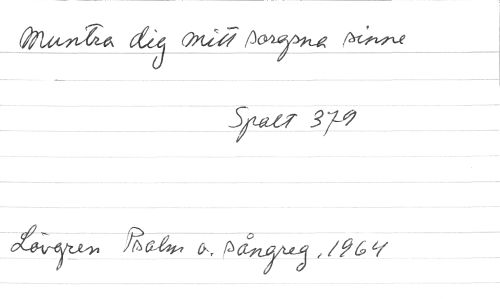 Muntra dig mitt sorgsna sinne
Spalt 379
Lövgren Psalm o. sångreg. 1964